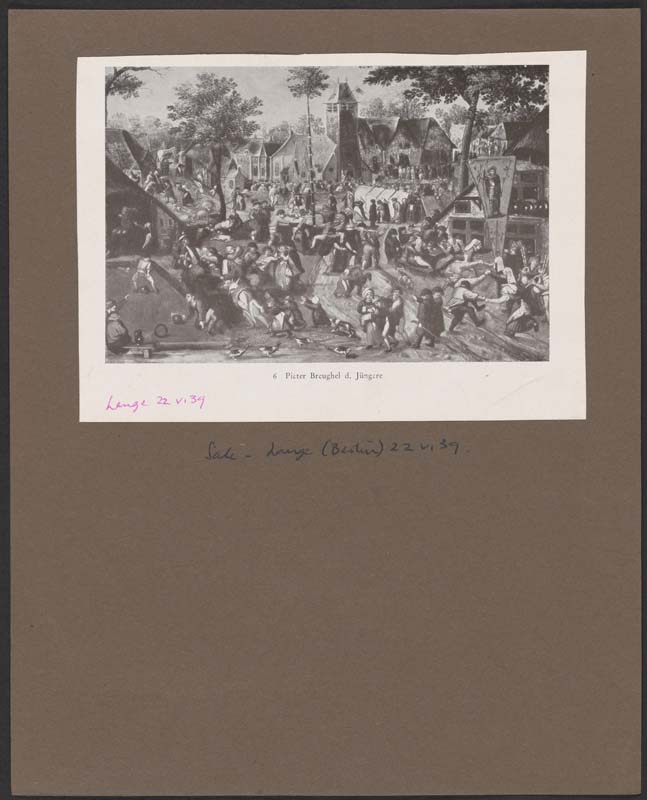 6 Pieter Breughel d. Jüngere
Lange 22 vi 39
Sale - Lange (Berlin) 22 vi 39.